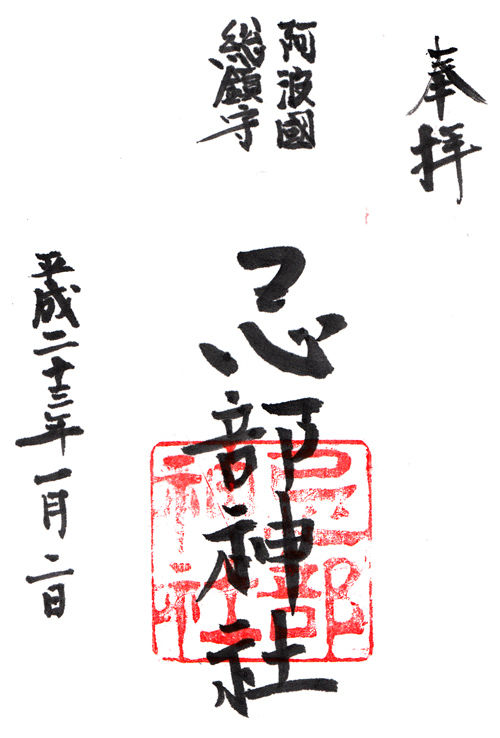 奉拝
阿波國
総鎮守
忌部神社
忌部
神社
平成二十三年一月二日